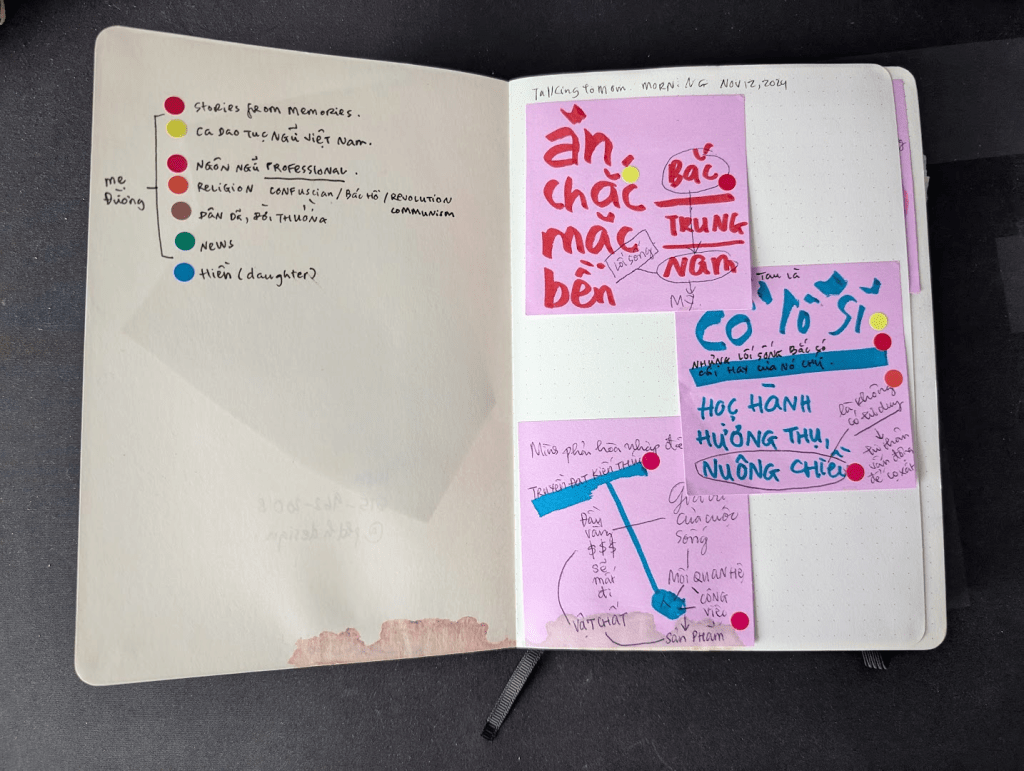 Stories from memories.
CA DAO TỤC NGỮ VIỆT NAM.
NGÔN NGỮ PROFESSIONAL.
RELIGION CONFUSCIAN / BÁC HỒ / REVOLUTION
COMMUNISM
DÂN DÃ, ĐỜI THƯỜNG
News
Hiền (daughter)
mẹ
Đường
Talking to mom MORNING NOV 12, 2024
ăn
chắc
mặc
bền
BẮC
TRUNG
NAM
Lối sống
MỸ
Tau là
CỔ SĨ
NHỮNG LỐI SỐNG BẮC SỐ
CÁI HAY CỦA NÓ CHỈ.
HỌC HÀNH
HƯỞNG THỤ,
NUÔNG CHIỀU
là không
có tư duy
vấn động
để cọ xát
Mình phải hòa nhập để
TRUYỀN ĐẠT KIẾN THỨC
Giá trị
của cuộc
sống
Đầu
vàng
$$$
sẽ
mất
đi
MỐI QUAN HỆ
CÔNG
VIỆC
VẬT CHẤT
SẢN PHẨM